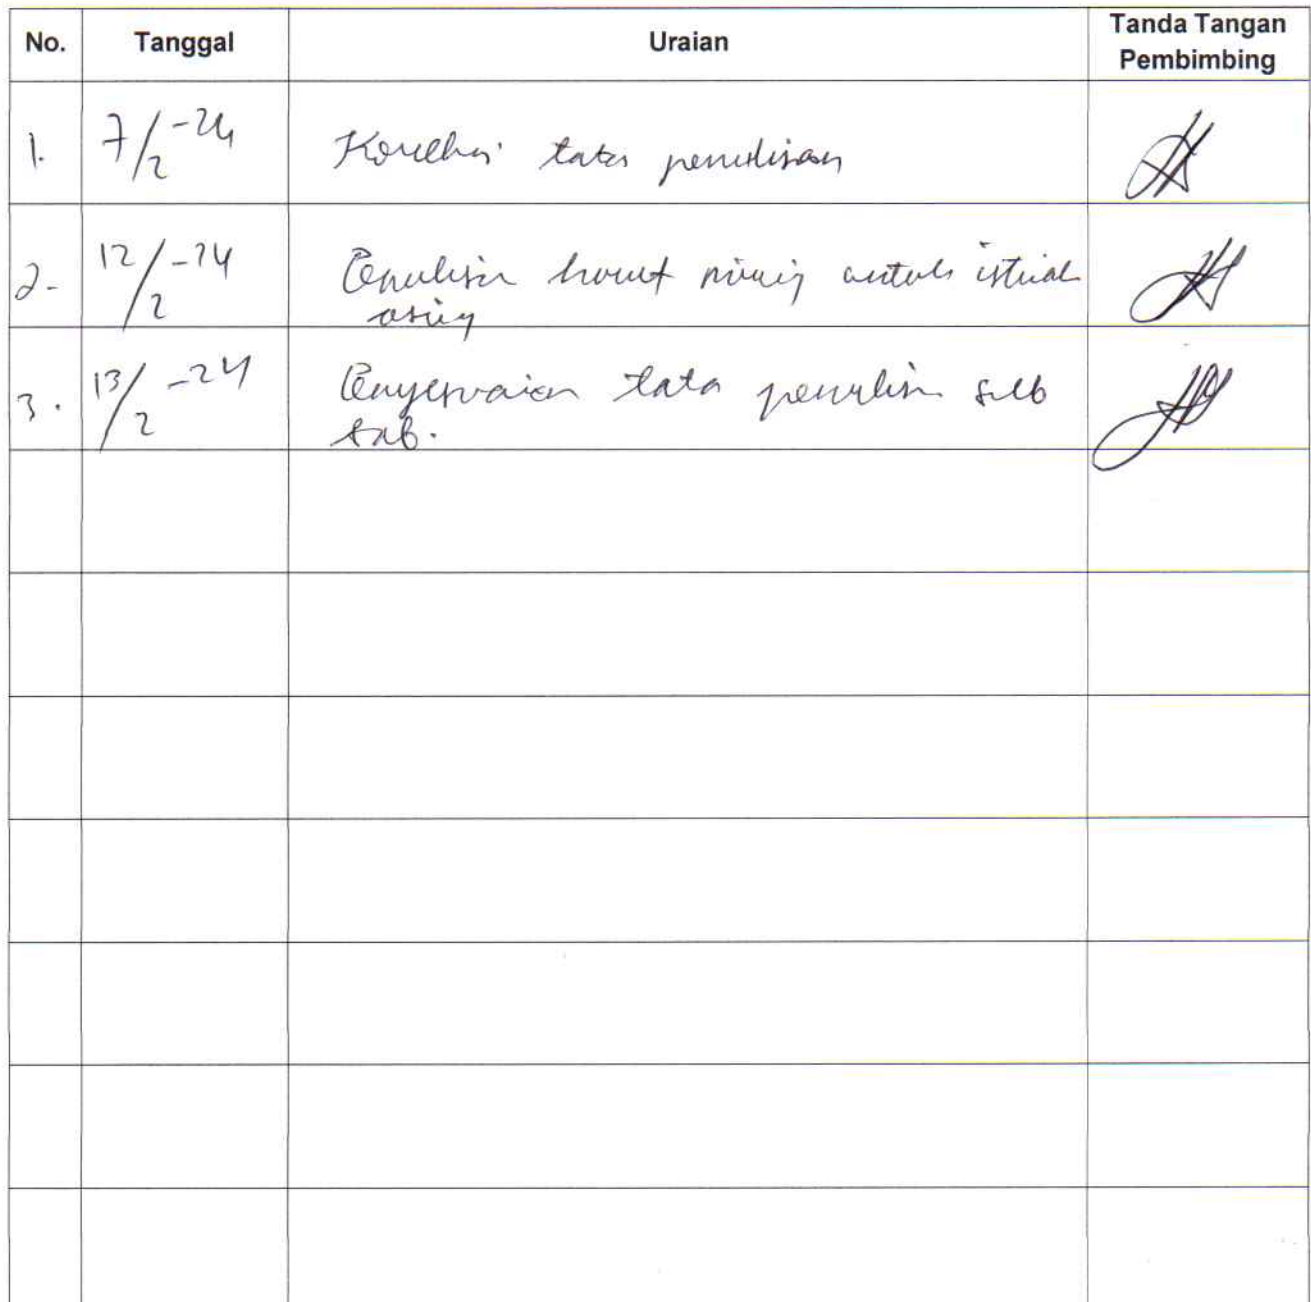 No. Tanggal Uraian Tanda Tangan
Pembimbing
1. 7/2-24 Koreksi tata penulisan
2. 12/2-24 Penulisan huruf miring untuk istilah
asing
3. 13/2-24 Penyesuaian tata penulisan sub
bab.